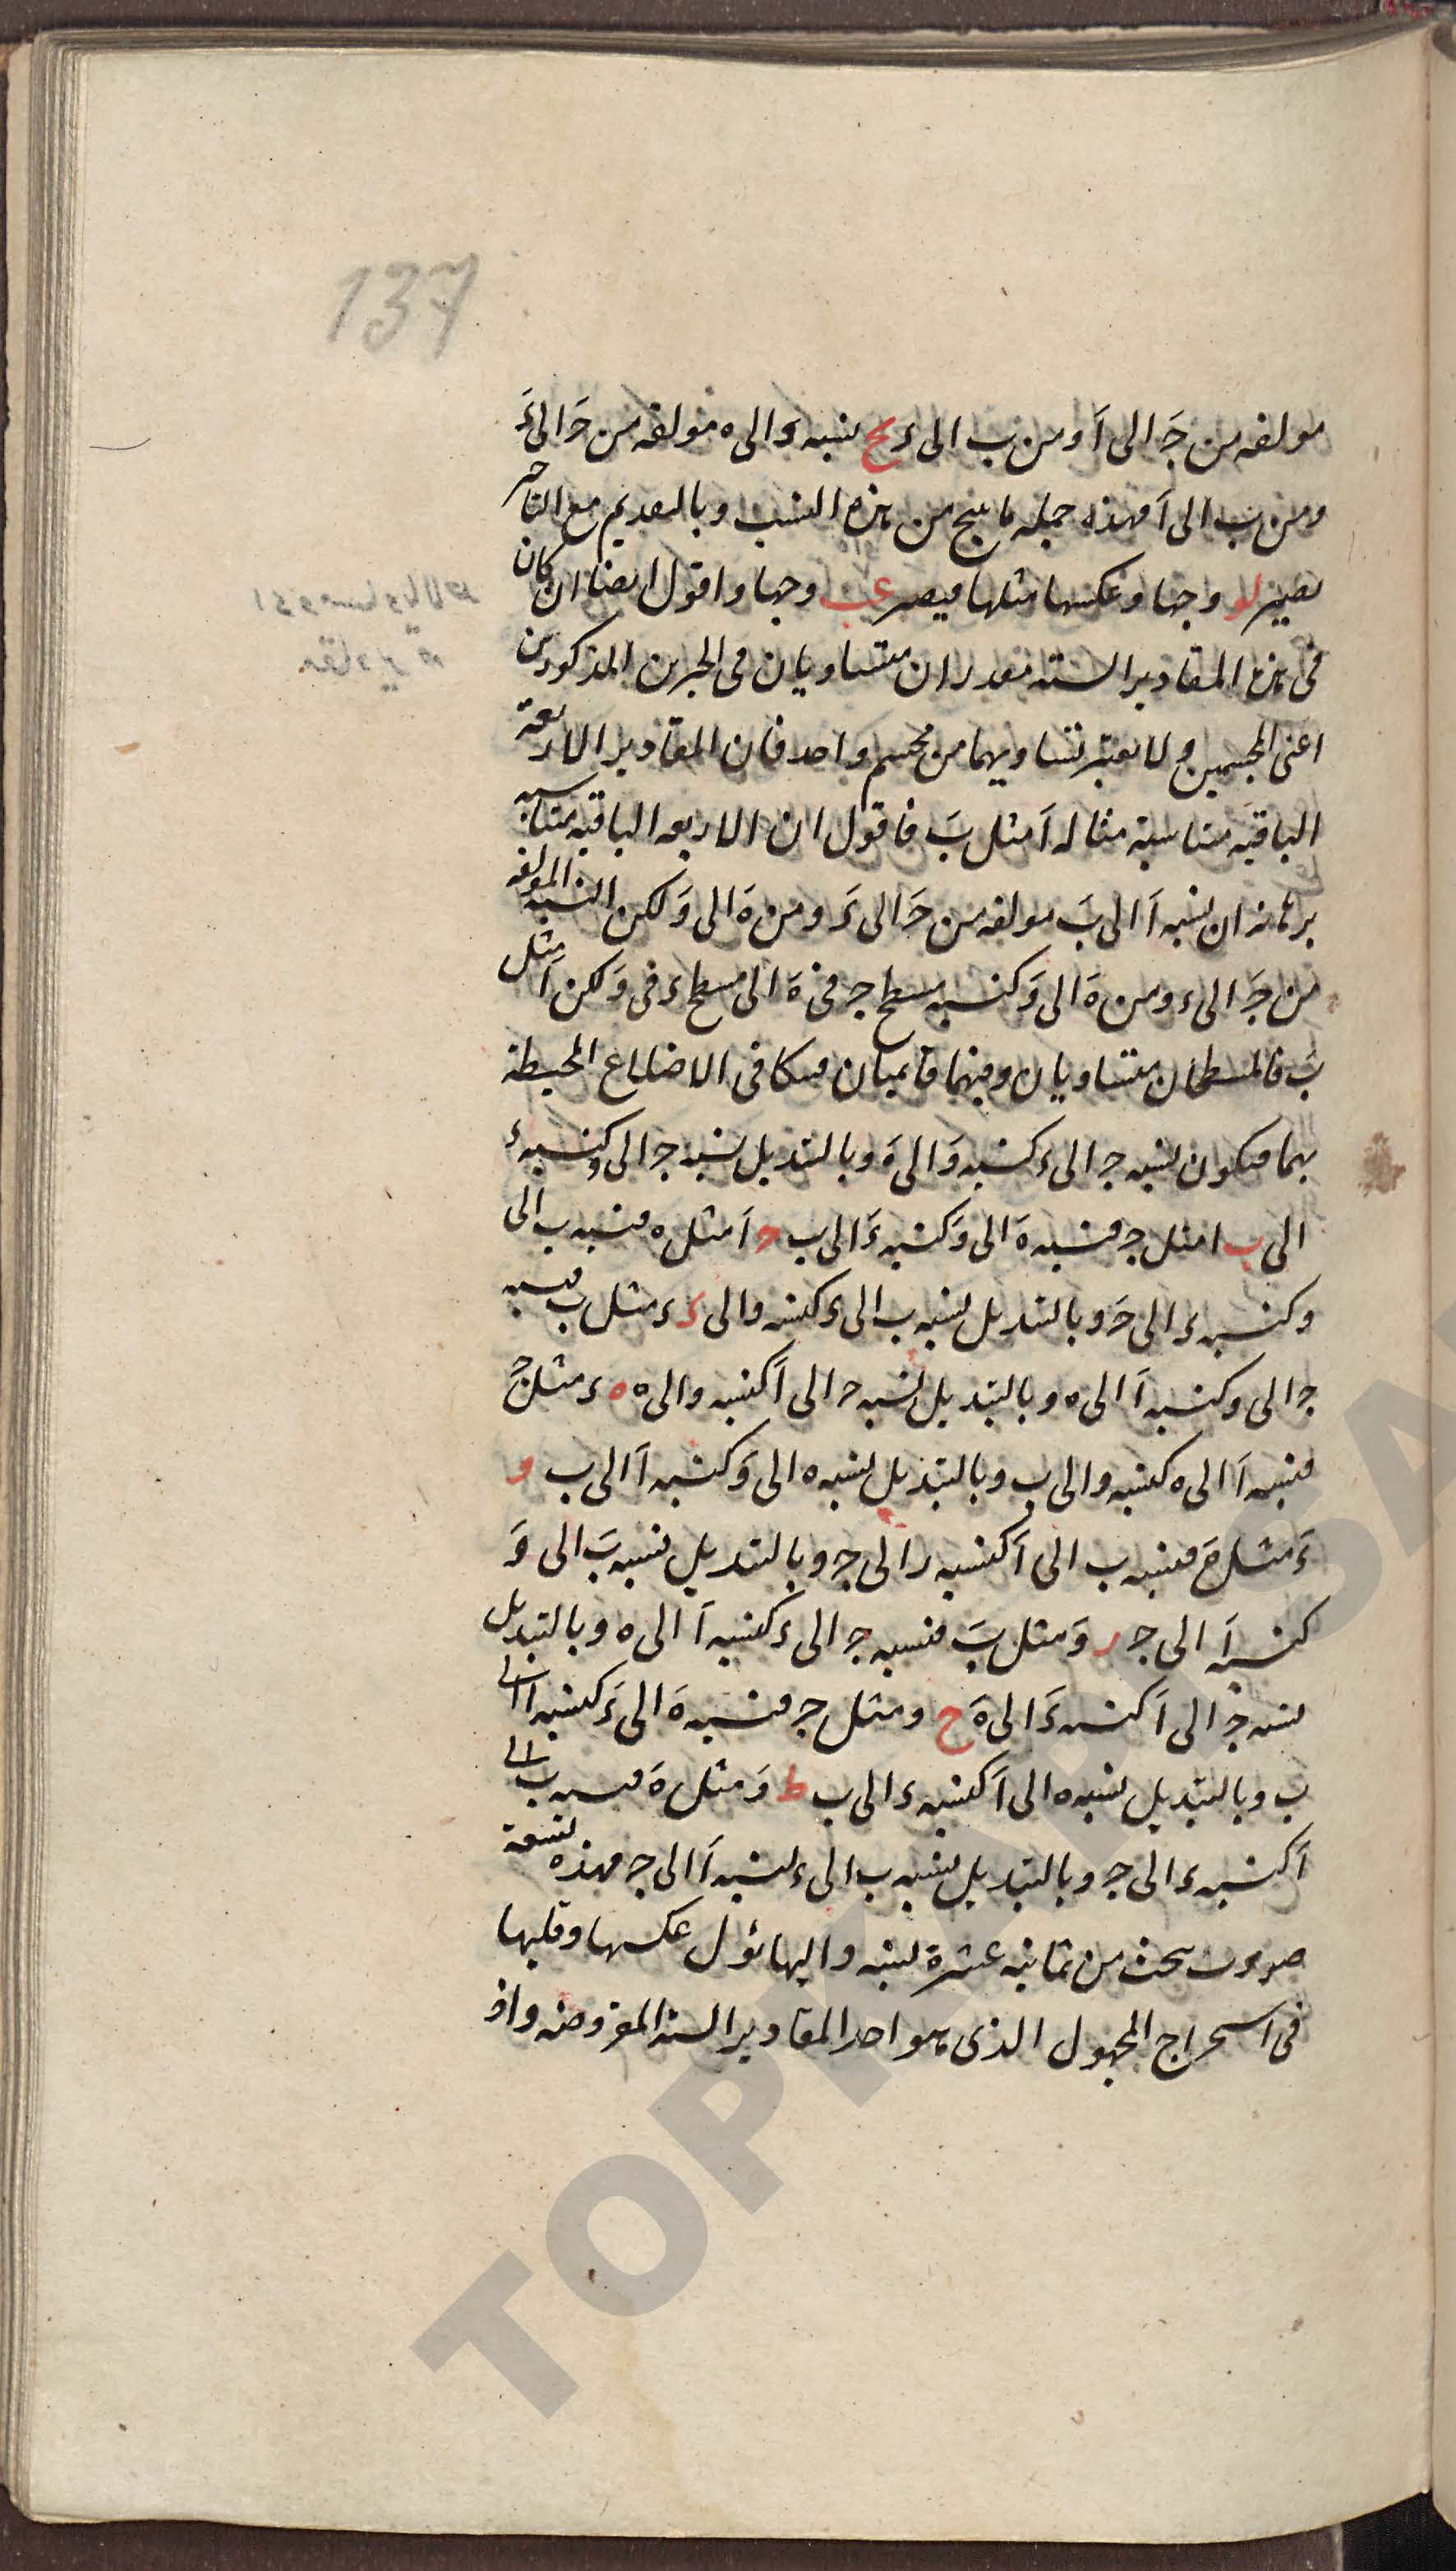 137
مولفه من جَ الى اَ ومن ب الى ء يح نسبه و الى ه مولفه من حَ الى ءَ
ومن ب الى اَ فهذه جمله ما ينتج من هذه النسب وبالتقديم مع التاخير
تصير لو وجها وعكسها مثلها فيصير عب وجها واقول ايضا ان كان
فى هذه المقادير السته مقدران متساويان فى الجزين المذكورين
اعنى المجسمين ولا يعتبر تساويهما من مجسم واحد فان المقادير الاربعة
الباقيه متناسبة مثاله اَ مثل بَ فاقول ان الاربعه الباقيه متناسبه
برهانه ان نسبه اَ الى بَ مولفه من حَ الى ءَ ومن هَ الى وَ لكن النسبه المولفه
من جَ الى ء ومن هَ الى وَ كنسبه مسطح جـ فى هَ الى مسطح ء فى وَ لكن اَ مثل
بَ فالمسطحان متساويان وفيهما قايمتان فتكافى الاضلاع المحيطة
بهما فتكون نسبه جـ الى ء كنسبه وَ الى هَ وبالتبديل نسبه جـ الى و كنسبه ء
الى ب ا مثل جـ فنسبه هَ الى وَ كنسبه ءَ الى ب ج اَ مثل ه فنسبه ب الى
و كنسبه ء الى حَ وبالتبديل نسبه ب الى ء كنسبه و الى ء ء مثل ب فنسبه
جـ الى و كنسبه اَ الى ه وبالتبديل نسبه حـ الى اَ كنسبه و الى ه ه ء مثل جَ
فنسبه اَ الى ه كنسبه و الى ب وبالتبديل نسبه ه الى وَ كنسبه اَ الى ب و
ءَ مثل هَ فنسبه ب الى اَ كنسبه و الى جـ وبالتبديل نسبه بَ الى وَ
كنسبه اَ الى جـ ر وَ مثل بَ فنسبه جـ الى ء كنسبه اَ الى ه وبالتبديل
نسبه جـ الى اَ كنسبه ءَ الى هَ ح و مثل جـ فنسبه هَ الى ءَ كنسبه اَ الى
ب وبالتبديل نسبه ه الى اَ كنسبه ء الى ب ط وَ مثل هَ فنسبه ب الى
اَ كنسبه ء الى جـ وبالتبديل نسبه ب الى ء كنسبه اَ الى جـ فهذه تسعة
صورت بحث من ثمانيه عشرة نسبه واليها تؤل عكسها وقلبها
فى استخراج المجهول الذى هو احد المقادير السته المفروضه واذ